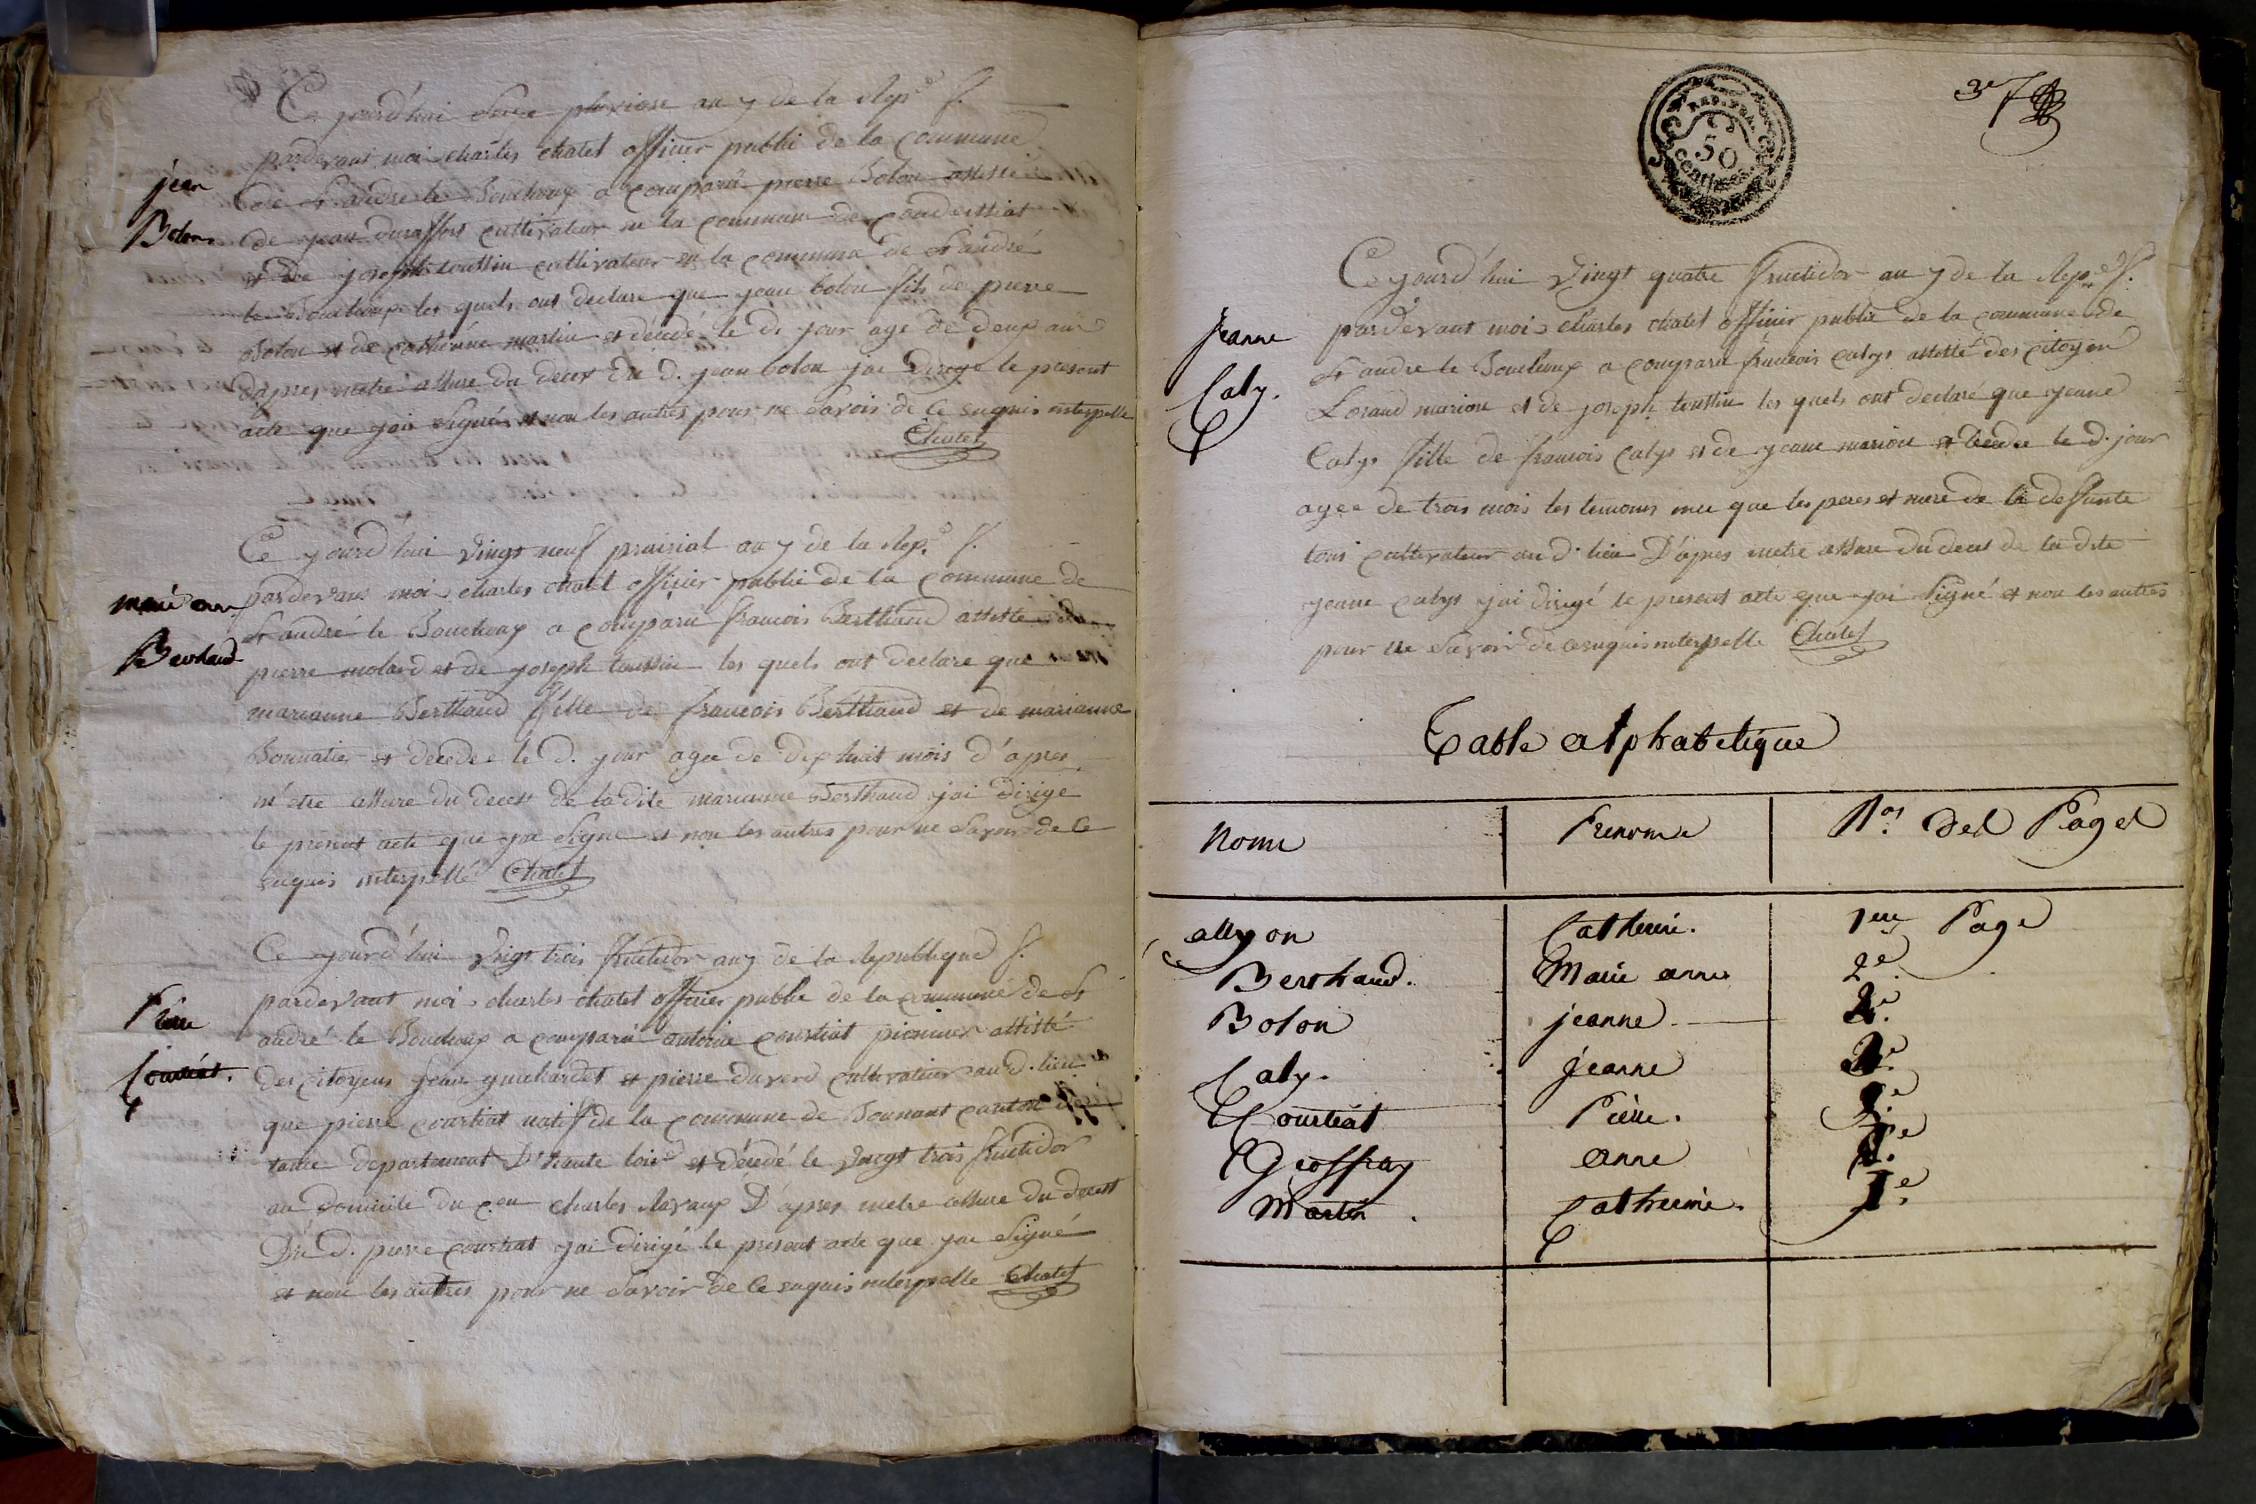 Ce jourd'hui pluviose an 7 de la Rep.e f.
pardevant moi charles chatel officier public de la commune
jean
Bolon
de St andre le Bouchoux a comparu pierre Bolon assisté
de jean duraffort cultivateur en la commune de condeissiat
et de joseph toussin cultivateur en la commune de St andré
le Bouchoux les quels ont declaré que jean bolon fils de pierre
Bolon et de catherine martin et décédé le d. jour age de deux ans
d'apres metre assure du deces du d. jean bolon jai dirigé le present
acte que jai signé et non les autres pour ne savoir de ce enquis interpellé
Chatel
Ce jourd'hui vingt neuf prairial an 7 de la Rep.e f.
pardevant moi charles chatel officier public de la commune de
marie anne
Berthaud
St andré le Bouchoux a comparu francois Berthaud assisté de
pierre molard et de joseph toussin les quels ont declare que
marianne Berthaud fille de francois Berthaud et de marianne
Bonnatier et decedee le d. jour agee de dix huit mois d'apres
m'etre assure du deces de la dite marianne Berthaud jai dirigé
le present acte que jai signe et non les autres pour ne savoir de ce
enquis interpellé Chatel
Ce jourd'hui vingt trois fructidor an 7 de la Republique f.
pardevant moi charles chatel officier public de la commune de St
Pierre
Courtiat.
andré le Bouchoux a comparu antoine courtiat pionnier assisté
des citoyens jean guichardet et pierre duverd cultivateur au d. lieu
que pierre courtiat natif de la commune de canton
departement D'haute loire et décédé le vingt trois fructidor
au domicile du c.en charles Ravaux D'apres metre assure du decest
Du d. pierre courtiat jai dirigé le present acte que jai signé
et non les autres pour ne savoir de ce enquis interpelle Chatel
REP. FRA.
50
centimes
3e 7
Ce jourd'hui vingt quatre fructidor an 7 de la Rep.e f.
pardevant moi charles chatel officier public de la commune de
jeanne
Caly.
St andre le Bouchoux a comparu francois calys assisté des citoyen
Lorand marion et de joseph toussin les quels ont declaré que jeanne
Calys fille de francois calys et de jeanne marion et decedee le d. jour
agee de trois mois les temoins que les peres et mere de la deffunte
tous cultivateur au d. lieu D'apres metre assure du deces de la dite
jeanne calys jai dirigé le present acte que jai signé et non les autres
pour ne savoir de ce enquis interpelle Chatel
Table alphabetique
Noms Prenoms Nos. des Pages
allyon Catherine. 1ere Page
Berthaud. Marie anne 2e.
Bolon jeanne 2e.
Caly. jeanne
Courtiat Pierre. 2e
Geoffray anne 1e.
Martin Catherine. 1e.